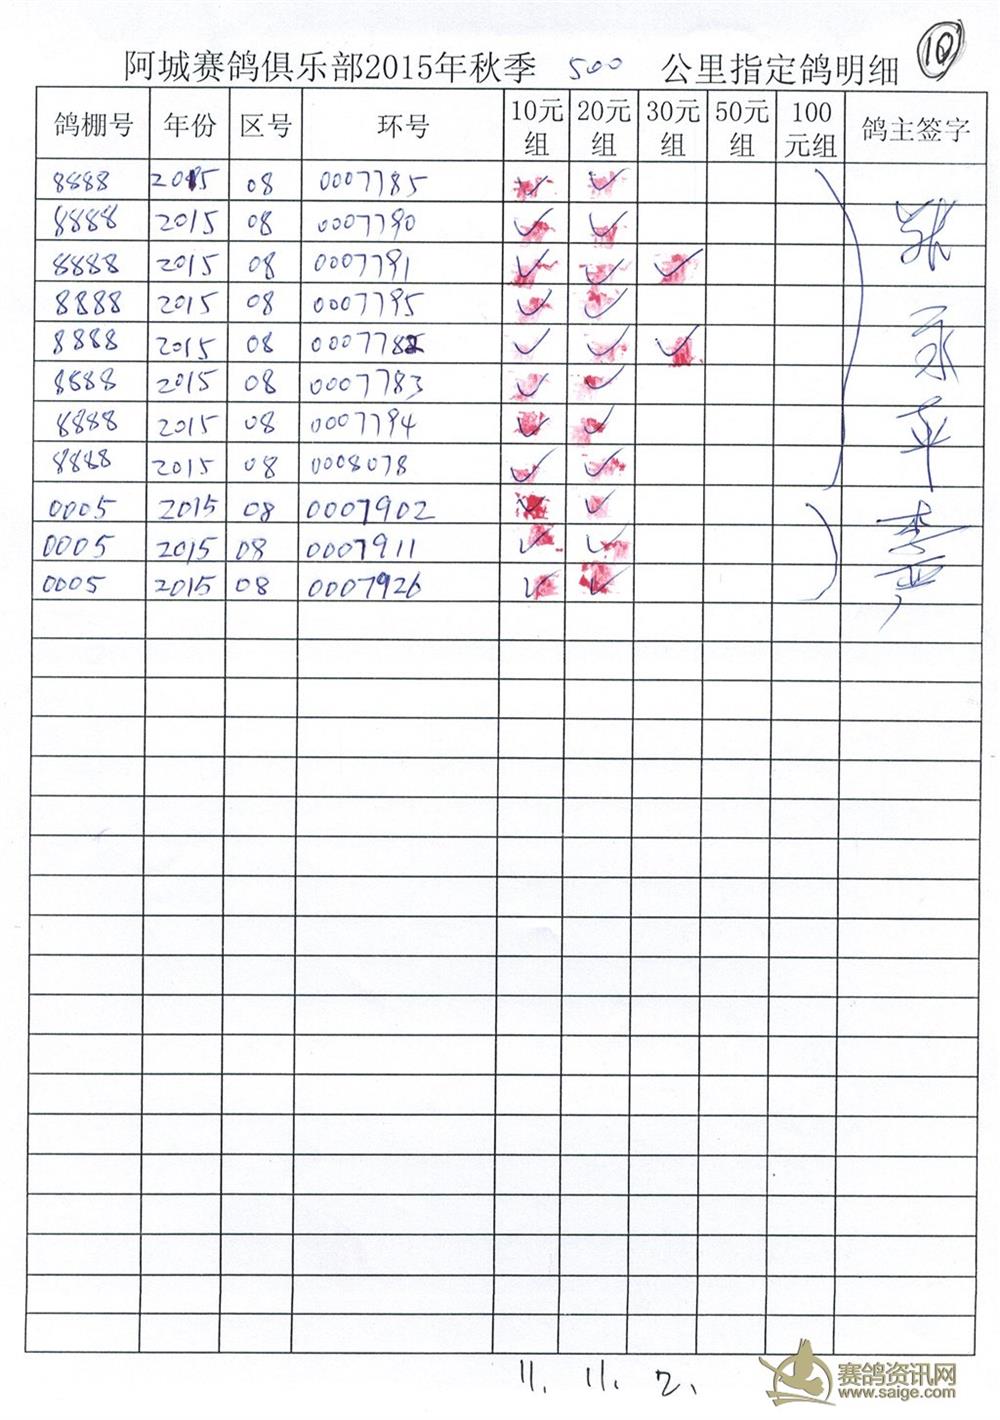 ⑩
阿城赛鸽俱乐部2015年秋季 500 公里指定鸽明细
鸽棚号 年份 区号 环号 10元组 20元组 30元组 50元组 100元组 鸽主签字
8888 2015 08 0007785 ✓ ✓
8888 2015 08 0007790 ✓ ✓
8888 2015 08 0007791 ✓ ✓ ✓
8888 2015 08 0007795 ✓ ✓
8888 2015 08 0007782 ✓ ✓ ✓
8888 2015 08 0007783 ✓ ✓
8888 2015 08 0007794 ✓ ✓
8888 2015 08 0008078 ✓ ✓
张永平
0005 2015 08 0007902 ✓ ✓
0005 2015 08 0007911 ✓ ✓
0005 2015 08 0007926 ✓ ✓
11. 11. 2.
赛鸽资讯网
www.saige.com